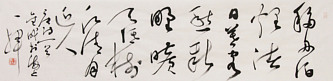 移舟泊
煙渚
日暮客
愁新
野曠
天低樹
江清月
近人